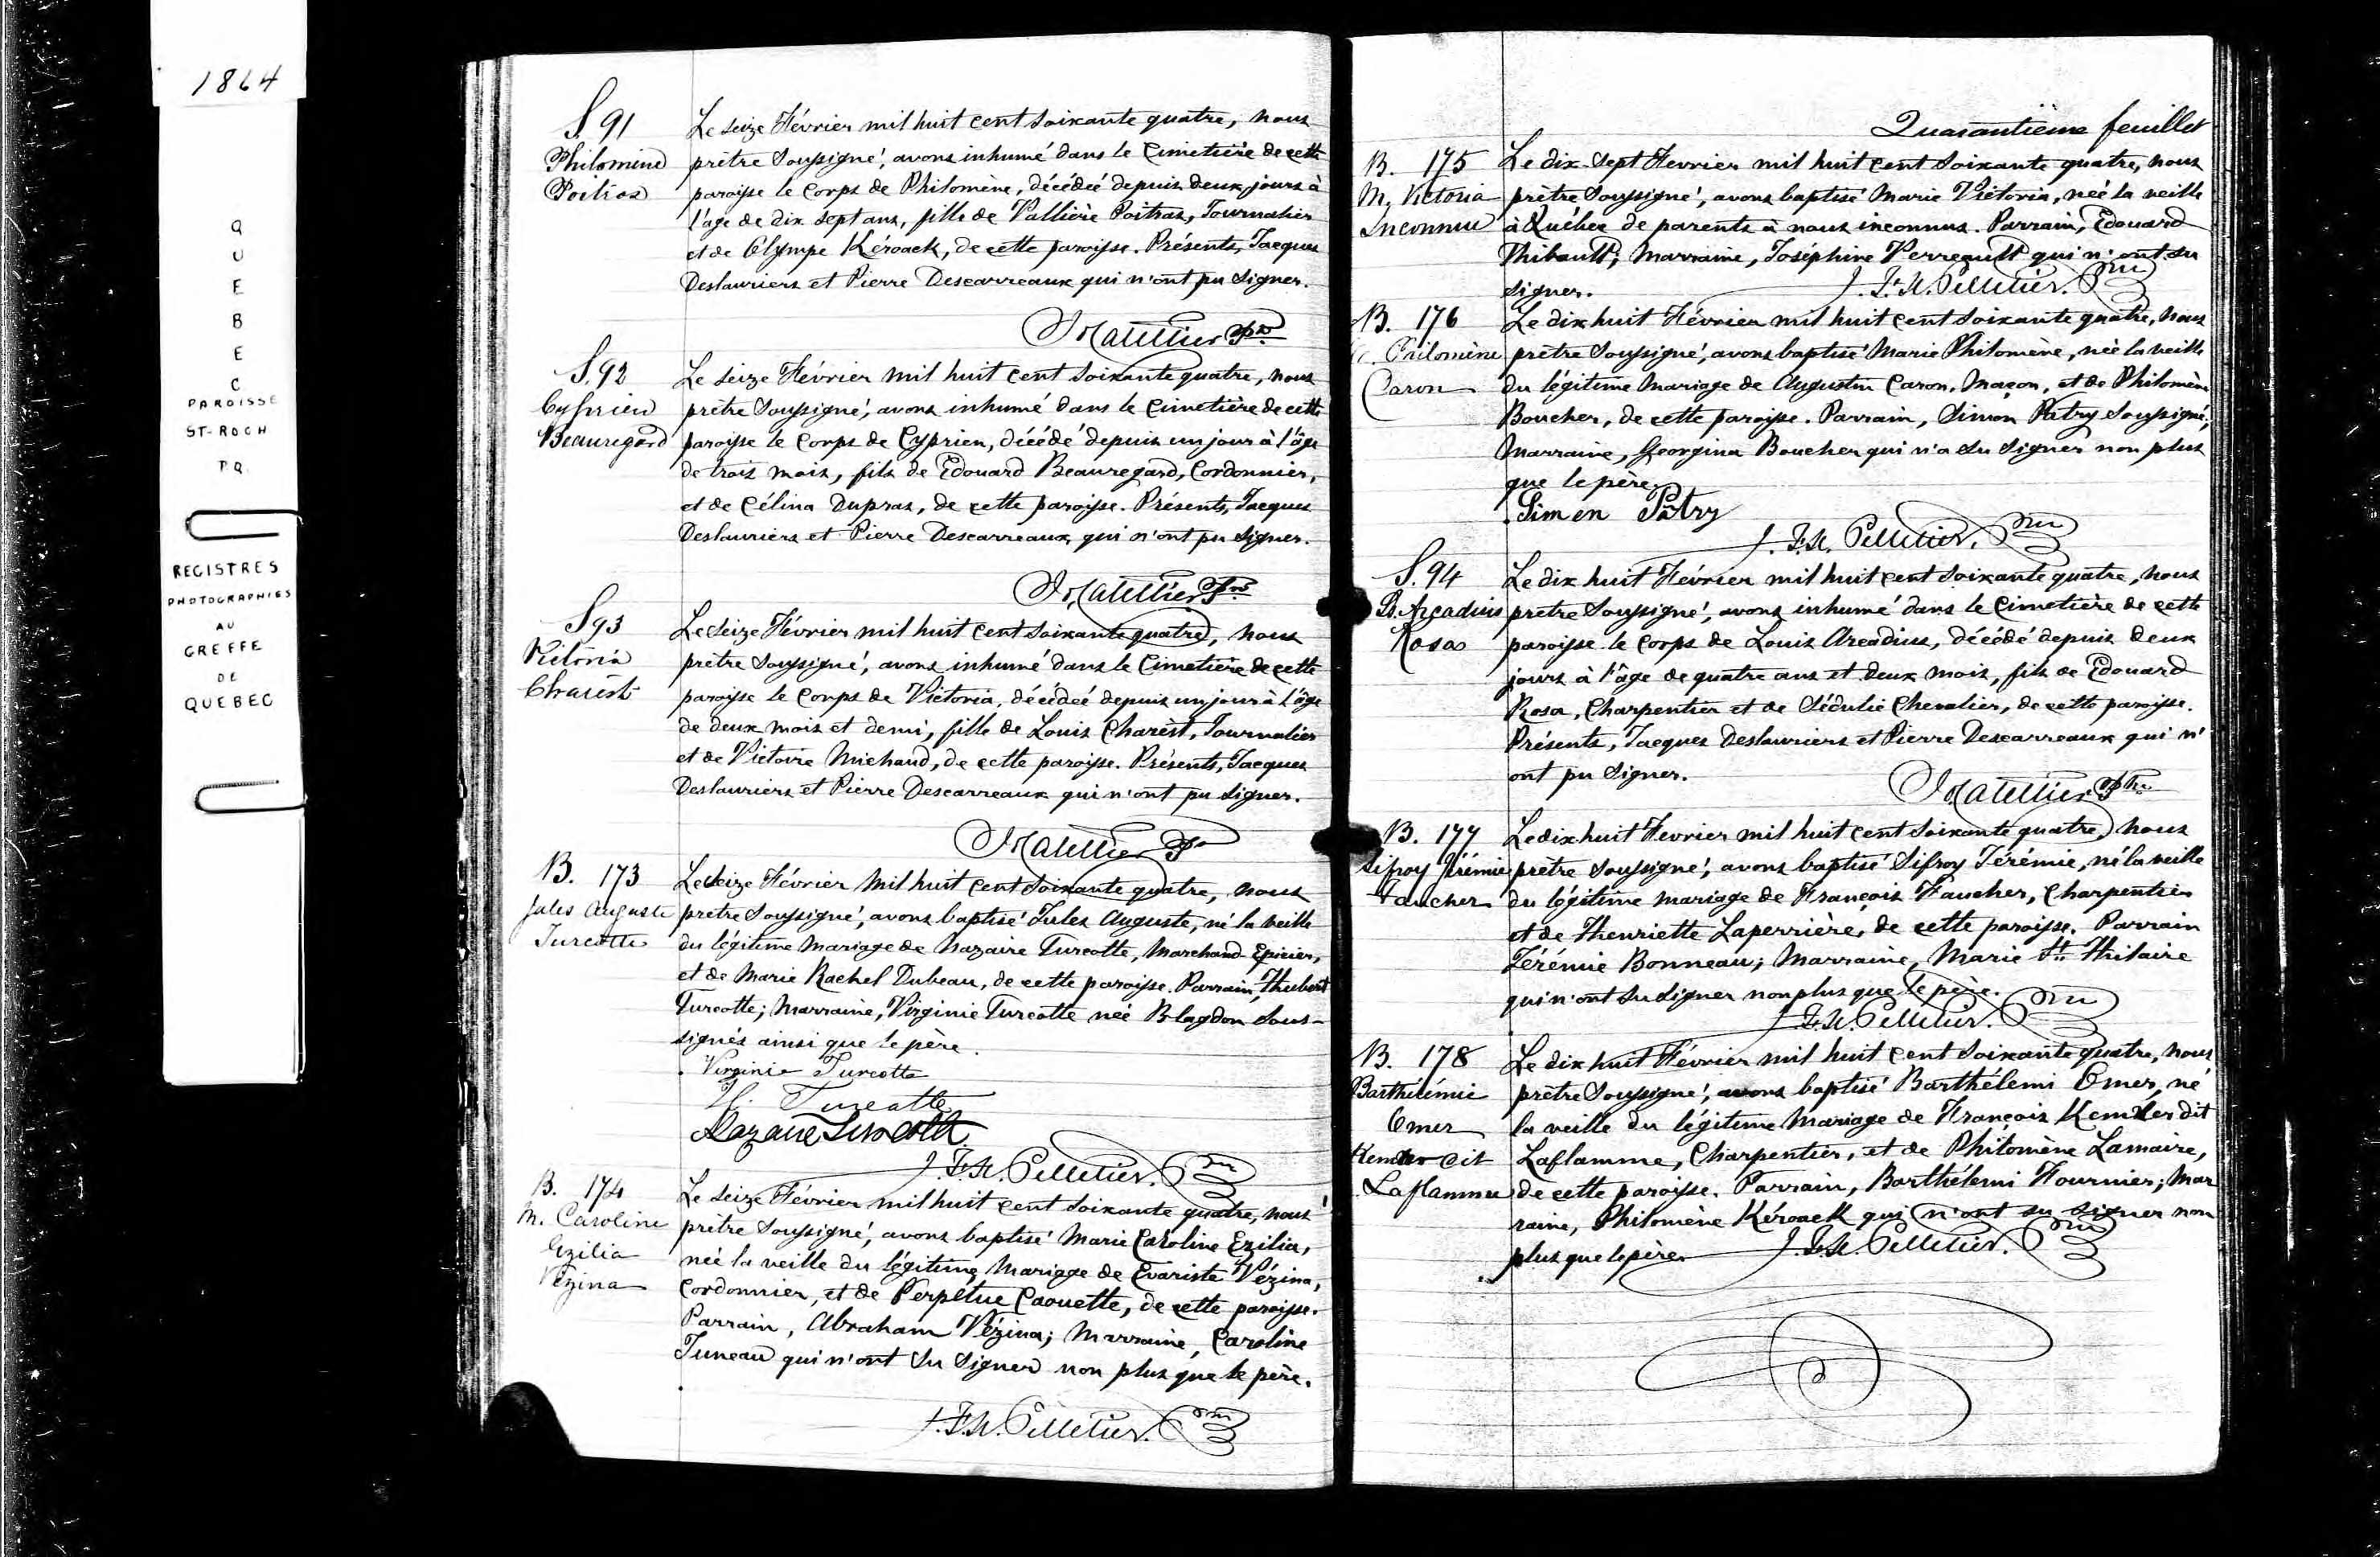 1864
QUEBEC
PAROISSE
ST-ROCH
P.Q.
REGISTRES
PHOTOGRAPHIES
AU
GREFFE
DE
QUEBEC
S. 91
Philomène
Poitras
Le seize Février mil huit cent soixante quatre, nous
prêtre soussigné, avons inhumé dans le Cimetière de cette
paroisse le Corps de Philomène, décédeé depuis deux jours à
l'age de dix sept ans, fille de Vallière Poitras, Journalier
et de Olympe Kéroack, de cette paroisse. Présents, Jacques
Deslauriers et Pierre Descarreaux qui n'ont pu signer.
S. 92
Cyprien
Beauregard
Le seize Février mil huit cent soixante quatre, nous
prêtre soussigné, avons inhumé dans le Cimetière de cette
paroisse le Corps de Cyprien, décédé depuis un jour à l'âge
de trois mois, fils de Edouard Beauregard, Cordonnier,
et de Célina Dupras, de cette paroisse. Présents, Jacques
Deslauriers et Pierre Descarreaux, qui n'ont pu signer.
S 93
Victoria
Charest
Le seize Février mil huit cent soixante quatre, nous
prêtre soussigné, avons inhumé dans le Cimetière de cette
paroisse le Corps de Victoria, décédeé depuis un jour à l'âge
de deux mois et demi, fille de Louis Charest, Journalier
et de Victoire Michaud, de cette paroisse. Présents, Jacques
Deslauriers et Pierre Descarreaux qui n'ont pu signer.
B. 173
Jules Auguste
Turcotte
Le seize Février mil huit cent soixante quatre, nous
prêtre soussigné, avons baptisé Jules Auguste, né la veille
du légitime mariage de Nazaire Turcotte, Marchand-Epicier,
et de Marie Rachel Dubeau, de cette paroisse. Parrain, Hubert
Turcotte; Marraine, Virginie Turcotte neé Blagdon sous-
signés ainsi que le père.
Virginie Turcotte
H. Turcotte
Nazaire Turcotte
J. F. X. Pelletier. Ptre
B. 174
M. Caroline
Ezilia
Vézina
Le seize Février mil huit cent soixante quatre, nous
prêtre soussigné, avons baptisé Marie Caroline Ezilia,
neé la veille du légitime mariage de Evariste Vézina,
Cordonnier, et de Perpétue Caouette, de cette paroisse.
Parrain, Abraham Vézina; Marraine, Caroline
Juneau qui n'ont su signer non plus que le père.
J. F. X. Pelletier. Ptre
Quarantième feuillet
B. 175
M. Victoria
Inconnue
Le dix-sept Fevrier mil huit cent soixante quatre, nous
prêtre soussigné, avons baptisé Marie Victoria, neé la veille
à Québec de parents à nous inconnus. Parrain, Edouard
Thibault; Marraine, Joséphine Verreault qui n'ont su
signer.
J. F. X. Pelletier. Ptre
B. 176
Philomène
Caron
Le dix huit Février mil huit cent soixante quatre, nous
prêtre soussigné, avons baptisé Marie Philomène, née la veille
du légitime mariage de Augustin Caron, Maçon, et de Philomène
Boucher, de cette paroisse. Parrain, Simon Patry soussigné,
Marraine, Georgina Boucher qui n'a su signer non plus
que le père.
Simon Patry
J. F. X. Pelletier. Ptre
S. 94
Ls. Arcadius
Rosa
Le dix huit Février mil huit cent soixante quatre, nous
prêtre soussigné, avons inhumé dans le Cimetière de cette
paroisse le Corps de Louis Arcadius, décédé depuis deux
jours à l'âge de quatre ans et deux mois, fils de Edouard
Rosa, Charpentier et de Sédulie Chevalier, de cette paroisse.
Présents, Jacques Deslauriers et Pierre Descarreaux qui n'
ont pu signer.
B. 177
Sifroy Jérémie
Faucher
Le dix huit Fevrier mil huit cent soixante quatre, nous
prêtre soussigné, avons baptisé Sifroy Jérémie, né la veille
du légitime mariage de François Faucher, Charpentier
et de Henriette Laperrière, de cette paroisse. Parrain
Jérémie Bonneau; Marraine, Marie St. Hilaire
qui n'ont su signer non plus que le père.
J. F. X. Pelletier. Ptre
B. 178
Barthélémie
Omer
Kemler dit
Laflamme
Le dix huit Février mil huit cent soixante quatre, nous
prêtre soussigné, avons baptisé Barthélemi Omer, né
la veille du légitime mariage de François Kemler dit
Laflamme, Charpentier, et de Philomène Lamaire,
de cette paroisse. Parrain, Barthélemi Fournier; Mar
raine, Philomène Kéroack qui n'ont su signer non
plus que le père.
J. F. X. Pelletier. Ptre